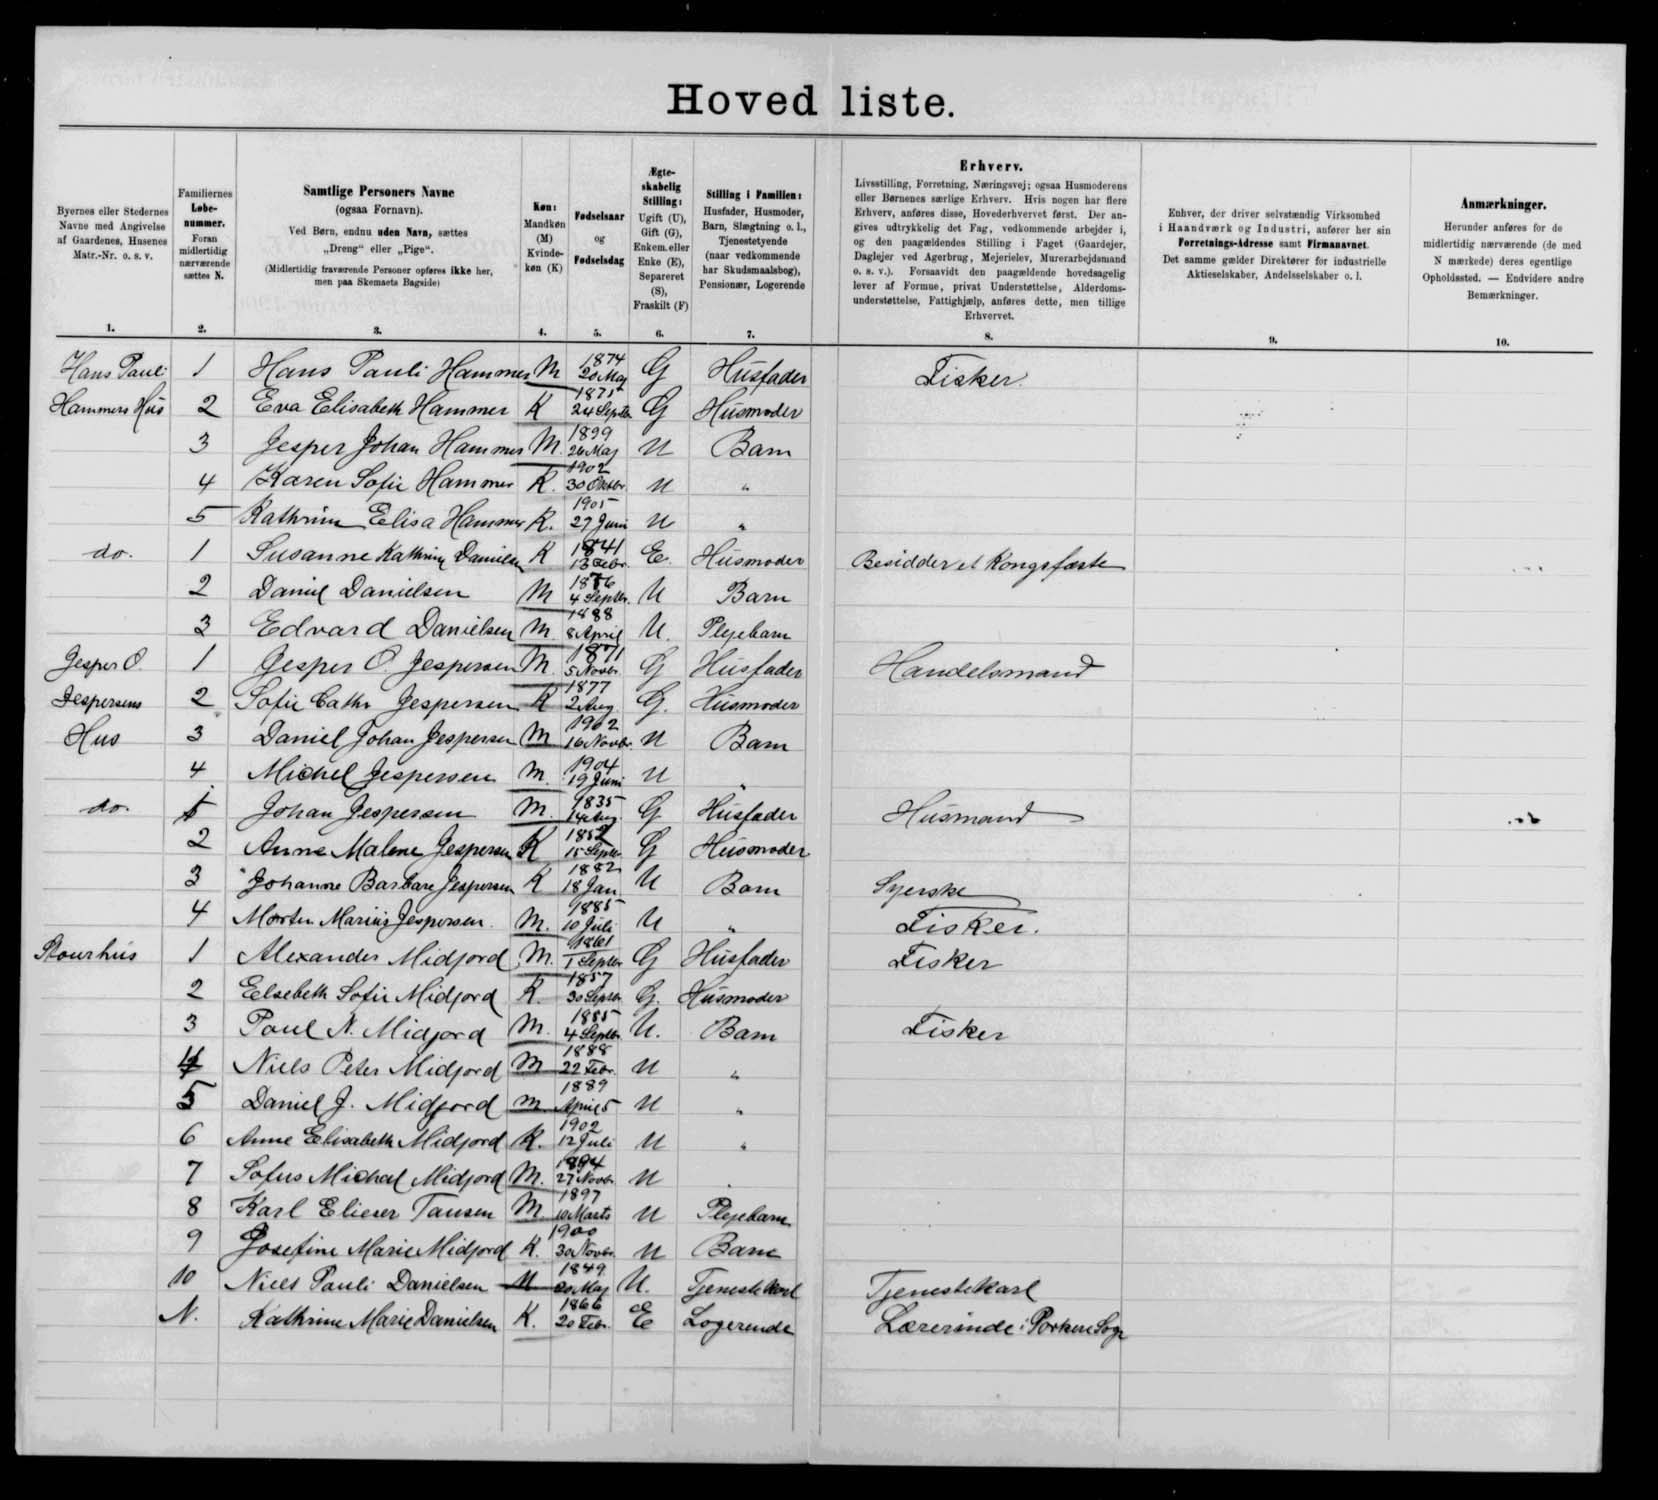 Hoved liste.
Byernes eller Stedernes Navne med Angivelse af Gaardenes, Husenes Matr.-Nr. o. s. v.
1.
Familiernes Løbe-nummer. Foran midlertidig nærværende sættes N.
2.
Samtlige Personers Navne (ogsaa Fornavn).
Ved Børn, endnu uden Navn, sættes „Dreng“ eller „Pige“.
(Midlertidig fraværende Personer opføres ikke her, men paa Skemaets Bagside)
3.
Køn: Mandkøn (M) Kvinde-køn (K)
4.
Fødselsaar og Fødselsdag
5.
Ægte-skabelig Stilling: Ugift (U), Gift (G), Enkem. eller Enke (E), Separeret (S), Fraskilt (F)
6.
Stilling i Familien: Husfader, Husmoder, Barn, Slægtning o. l., Tjenestetyende (naar vedkommende har Skudsmaalsbog), Pensionær, Logerende
7.
Erhverv.
Livsstilling, Forretning, Næringsvej; ogsaa Husmoderens eller Børnenes særlige Erhverv. Hvis nogen har flere Erhverv, anføres disse, Hovederhvervet først. Der angives udtrykkelig det Fag, vedkommende arbejder i, og den paagældendes Stilling i Faget (Gaardejer, Daglejer ved Agerbrug, Mejerielev, Murerarbejdsmand o. s. v.). Forsaavidt den paagældende hovedsagelig lever af Formue, privat Understøttelse, Alderdoms-understøttelse, Fattighjælp, anføres dette, men tillige Erhvervet.
8.
Enhver, der driver selvstændig Virksomhed i Haandværk og Industri, anfører her sin Forretnings-Adresse samt Firmanavnet. Det samme gælder Direktører for industrielle Aktieselskaber, Andelsselskaber o. l.
9.
Anmærkninger.
Herunder anføres for de midlertidig nærværende (de med N mærkede) deres egentlige Opholdssted. — Endvidere andre Bemærkninger.
10.
Hans Pauli 1 Hans Pauli Hammer M 1874 20 Maj G Husfader Fisker.
Hammers Hus 2 Eva Elisabeth Hammer K 1875 24 Septbr G Husmoder
3 Jesper Johan Hammer M. 1899 26 Maj U Barn
4 Karen Sofie Hammer K. 1902 30 Oktbr. U "
5 Kathrine Elisa Hammer K. 1905 27 Juni U "
do. 1 Susanne Kathrine Danielsen K 1841 13 Febr. E. Husmoder Besidder et Kongsfæste
2 Daniel Danielsen M 4 Septbr. U Barn
3 Edvard Danielsen M. 1888 8 April U. Plejebarn
Jesper O. 1 Jesper O. Jespersen M. 1871 5 Novbr. G Husfader Handelsmand
Jespersens 2 Sofie Cathr Jespersen K 1877 2 Aug. G. Husmoder
Hus 3 Daniel Johan Jespersen M 1902 16 Novbr. U Barn
4 Michel Jespersen M. 1904 19 Juni U "
do. 1 Johan Jespersen M. 1835 14 Aug. G Husfader Husmand
2 Anne Malene Jespersen K 1852 15 Septbr G Husmoder
3 Johanne Barbare Jespersen K 1882 18 Jan. U Barn Syerske
4 Morten Marius Jespersen. M. 1885 10 Juli U " Fisker.
1 Alexander Midjord M. 1861 1 Septbr G Husfader Fisker
2 Elsebeth Sofie Midjord K. 1857 30 Septbr. G. Husmoder
3 Poul N. Midjord M. 1885 4 Septbr. U. Barn Fisker
4 Niels Peter Midjord M 1888 22 Febr. U "
5 Daniel J. Midjord M. 1889 April 5 U "
6 Anne Elisabeth Midjord K. 1902 12 Juli U "
7 Sofus Michal Midjord M. 1894 27 Novbr. U
8 Karl Elieser Tausen M. 1897 10 Marts U Plejebarn
9 Josefine Marie Midjord K. 1900 30 Novbr. U Barn
10 Niels Pauli Danielsen M 1849 20 Maj U. Tjenestekarl Tjenestekarl
N. Kathrine Marie Danielsen K. 1866 20 Febr. E Logerende Lærerinde i Porkere Sogn